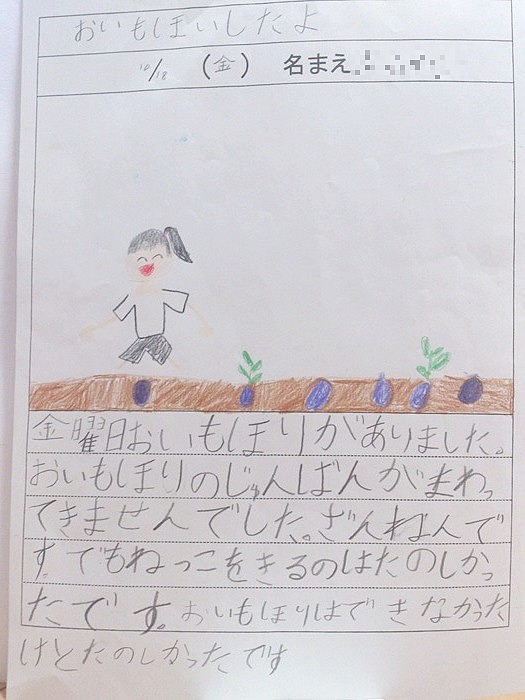 おいもほいしたよ
10/18 (金) 名まえ
金曜日おいもほりがありました。
おいもほりのじゅんばんがまわっ
てきませんでした。ざんねんで
す。でもねっこをきるのはたのしかっ
たです。おいもほりはできなかった
けとたのしかったです